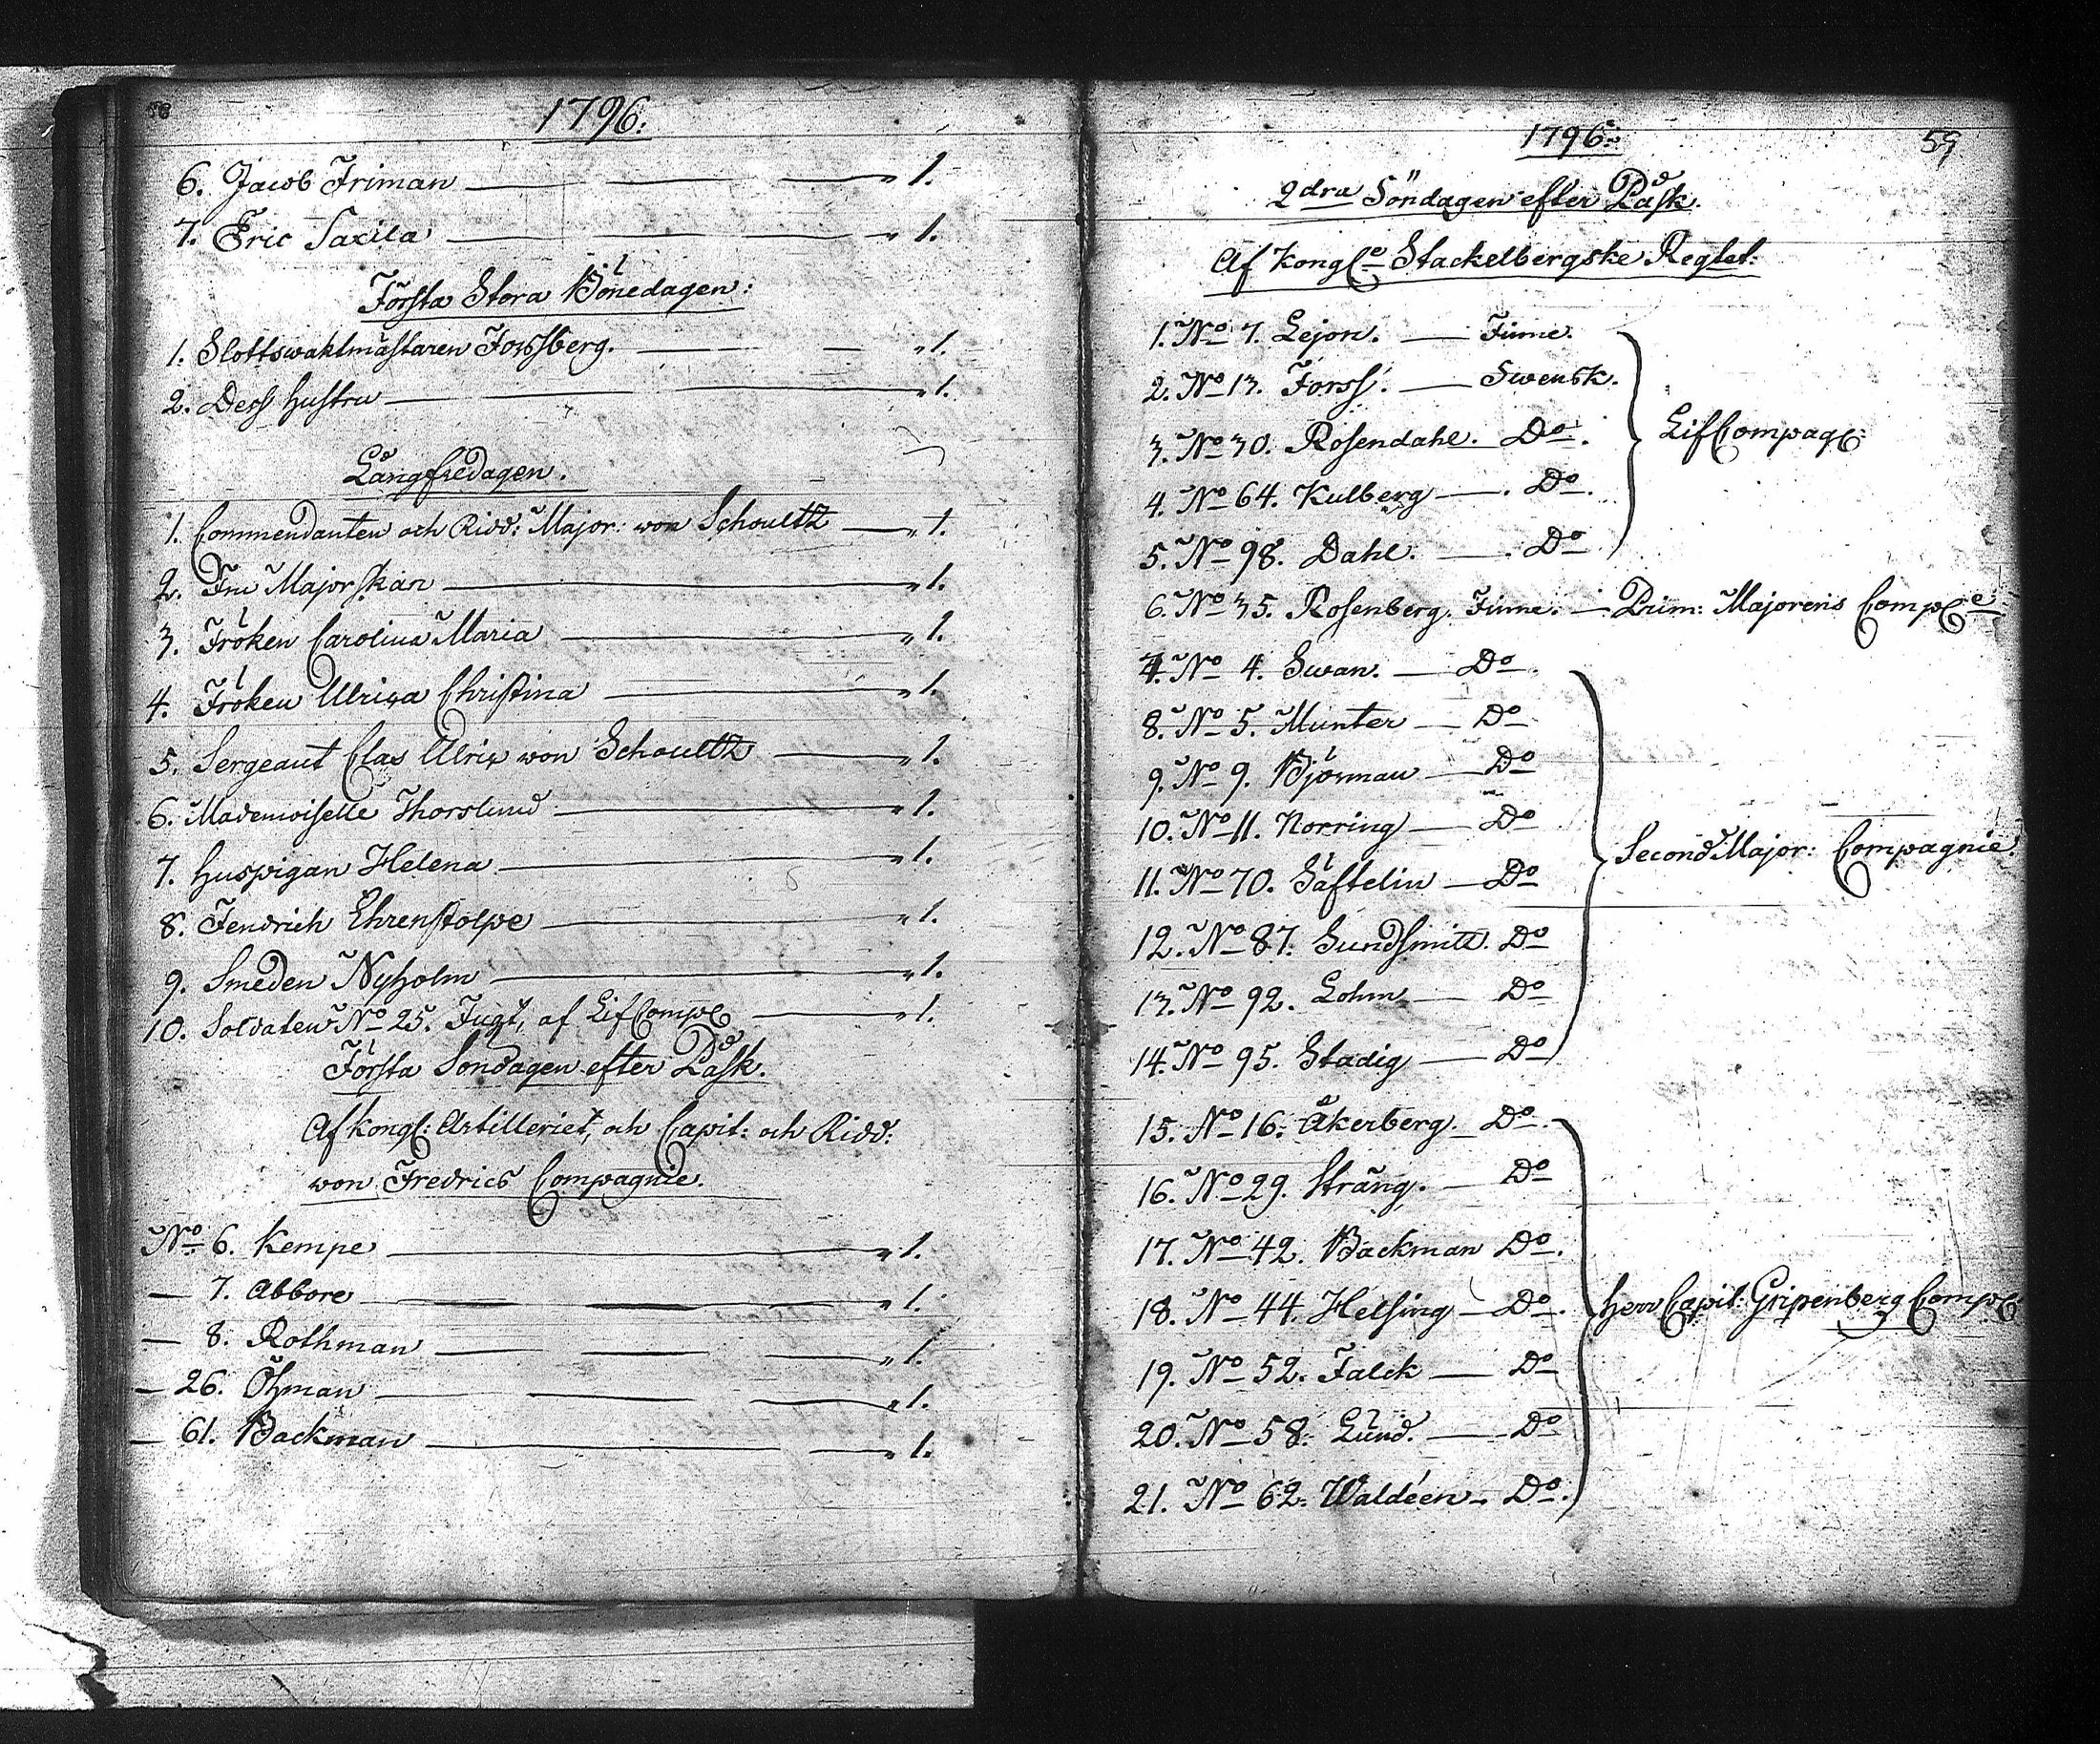 58
1796.
6. Jacob Friman — — — „ 1.
7. Eric Saxila — — — „ 1.
Första Stora Bönedagen:
1. Slottswaktmästaren Forssberg. — — — „ 1.
2. Dess hustru — — — „ 1.
Långfredagen.
1. Commendanten och Ridd: Major: von Schoultz — „ 1.
2. Fru Majorskan — „ 1.
3. Fröken Carolina Maria — „ 1.
4. Fröken Ulrica Christina — „ 1.
5. Sergeant Clas Ulric von Schoultz — „ 1.
6. Mademoiselle Thorslund — „ 1.
7. Huspigan Helena — „ 1.
8. Fendrich Ehrenstolpe — „ 1.
9. Smeden Nyholm — „ 1.
10. Soldaten No 25. Fugt, af LifComp: — „ 1.
Första Söndagen efter Påsk.
Af Kongl: Artilleriet, och Capit: och Ridd:
von Fredrics Compagnie.
No 6. Kempe — „ 1.
— 7. Abbore — — — „ 1.
— 8. Rothman — — — „ 1.
— 26. Öhman — — — „ 1.
— 61. Backman — — „ 1.
1796. 59
2dra Söndagen efter Påsk.
Af Kongl: Stackelbergske Regtet:
1. No 7. Lejon. — Finne.
2. No 13. Forss. — Swensk.
3. No 30. Rosendahl. Do.
LifCompag:
4. No 64. Kulberg — Do.
5. No 98. Dahl. — Do
6. No 35. Rosenberg. Finne. — Prim: Majorens Compe
7. No 4. Swan. — Do.
8. No 5. Munter — Do
9. No 9. Björman — Do
10. No 11. Norring — Do
Second Major: Compagnie.
11. No 70. Säftelin — Do
12. No 87. Sundsmitt. Do
13. No 92. Lohm — Do
14. No 95. Stadig — Do
15. No 16. Åkerberg. Do.
16. No 29. Sträng. — Do
17. No 42. Backman Do.
18. No 44. Helsing — Do. Herr Capit: Gripenberg Comp:
19. No 52. Falck — Do
20. No 58. Lund. — Do
21. No 62. Waldéen — Do.